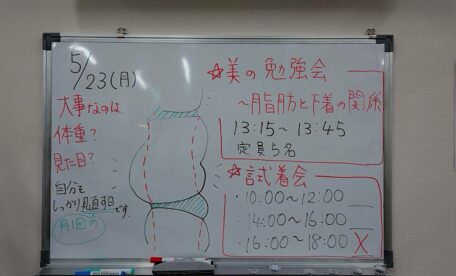 5/23(月)
大事なのは、
体重?
見た目?
自分を
しっかり見直す日です。
月1回の
☆美の勉強会
〜脂肪と下着の関係
13:15〜13:45
定員5名
☆試着会
・10:00〜12:00
・14:00〜16:00
・16:00〜18:00 X